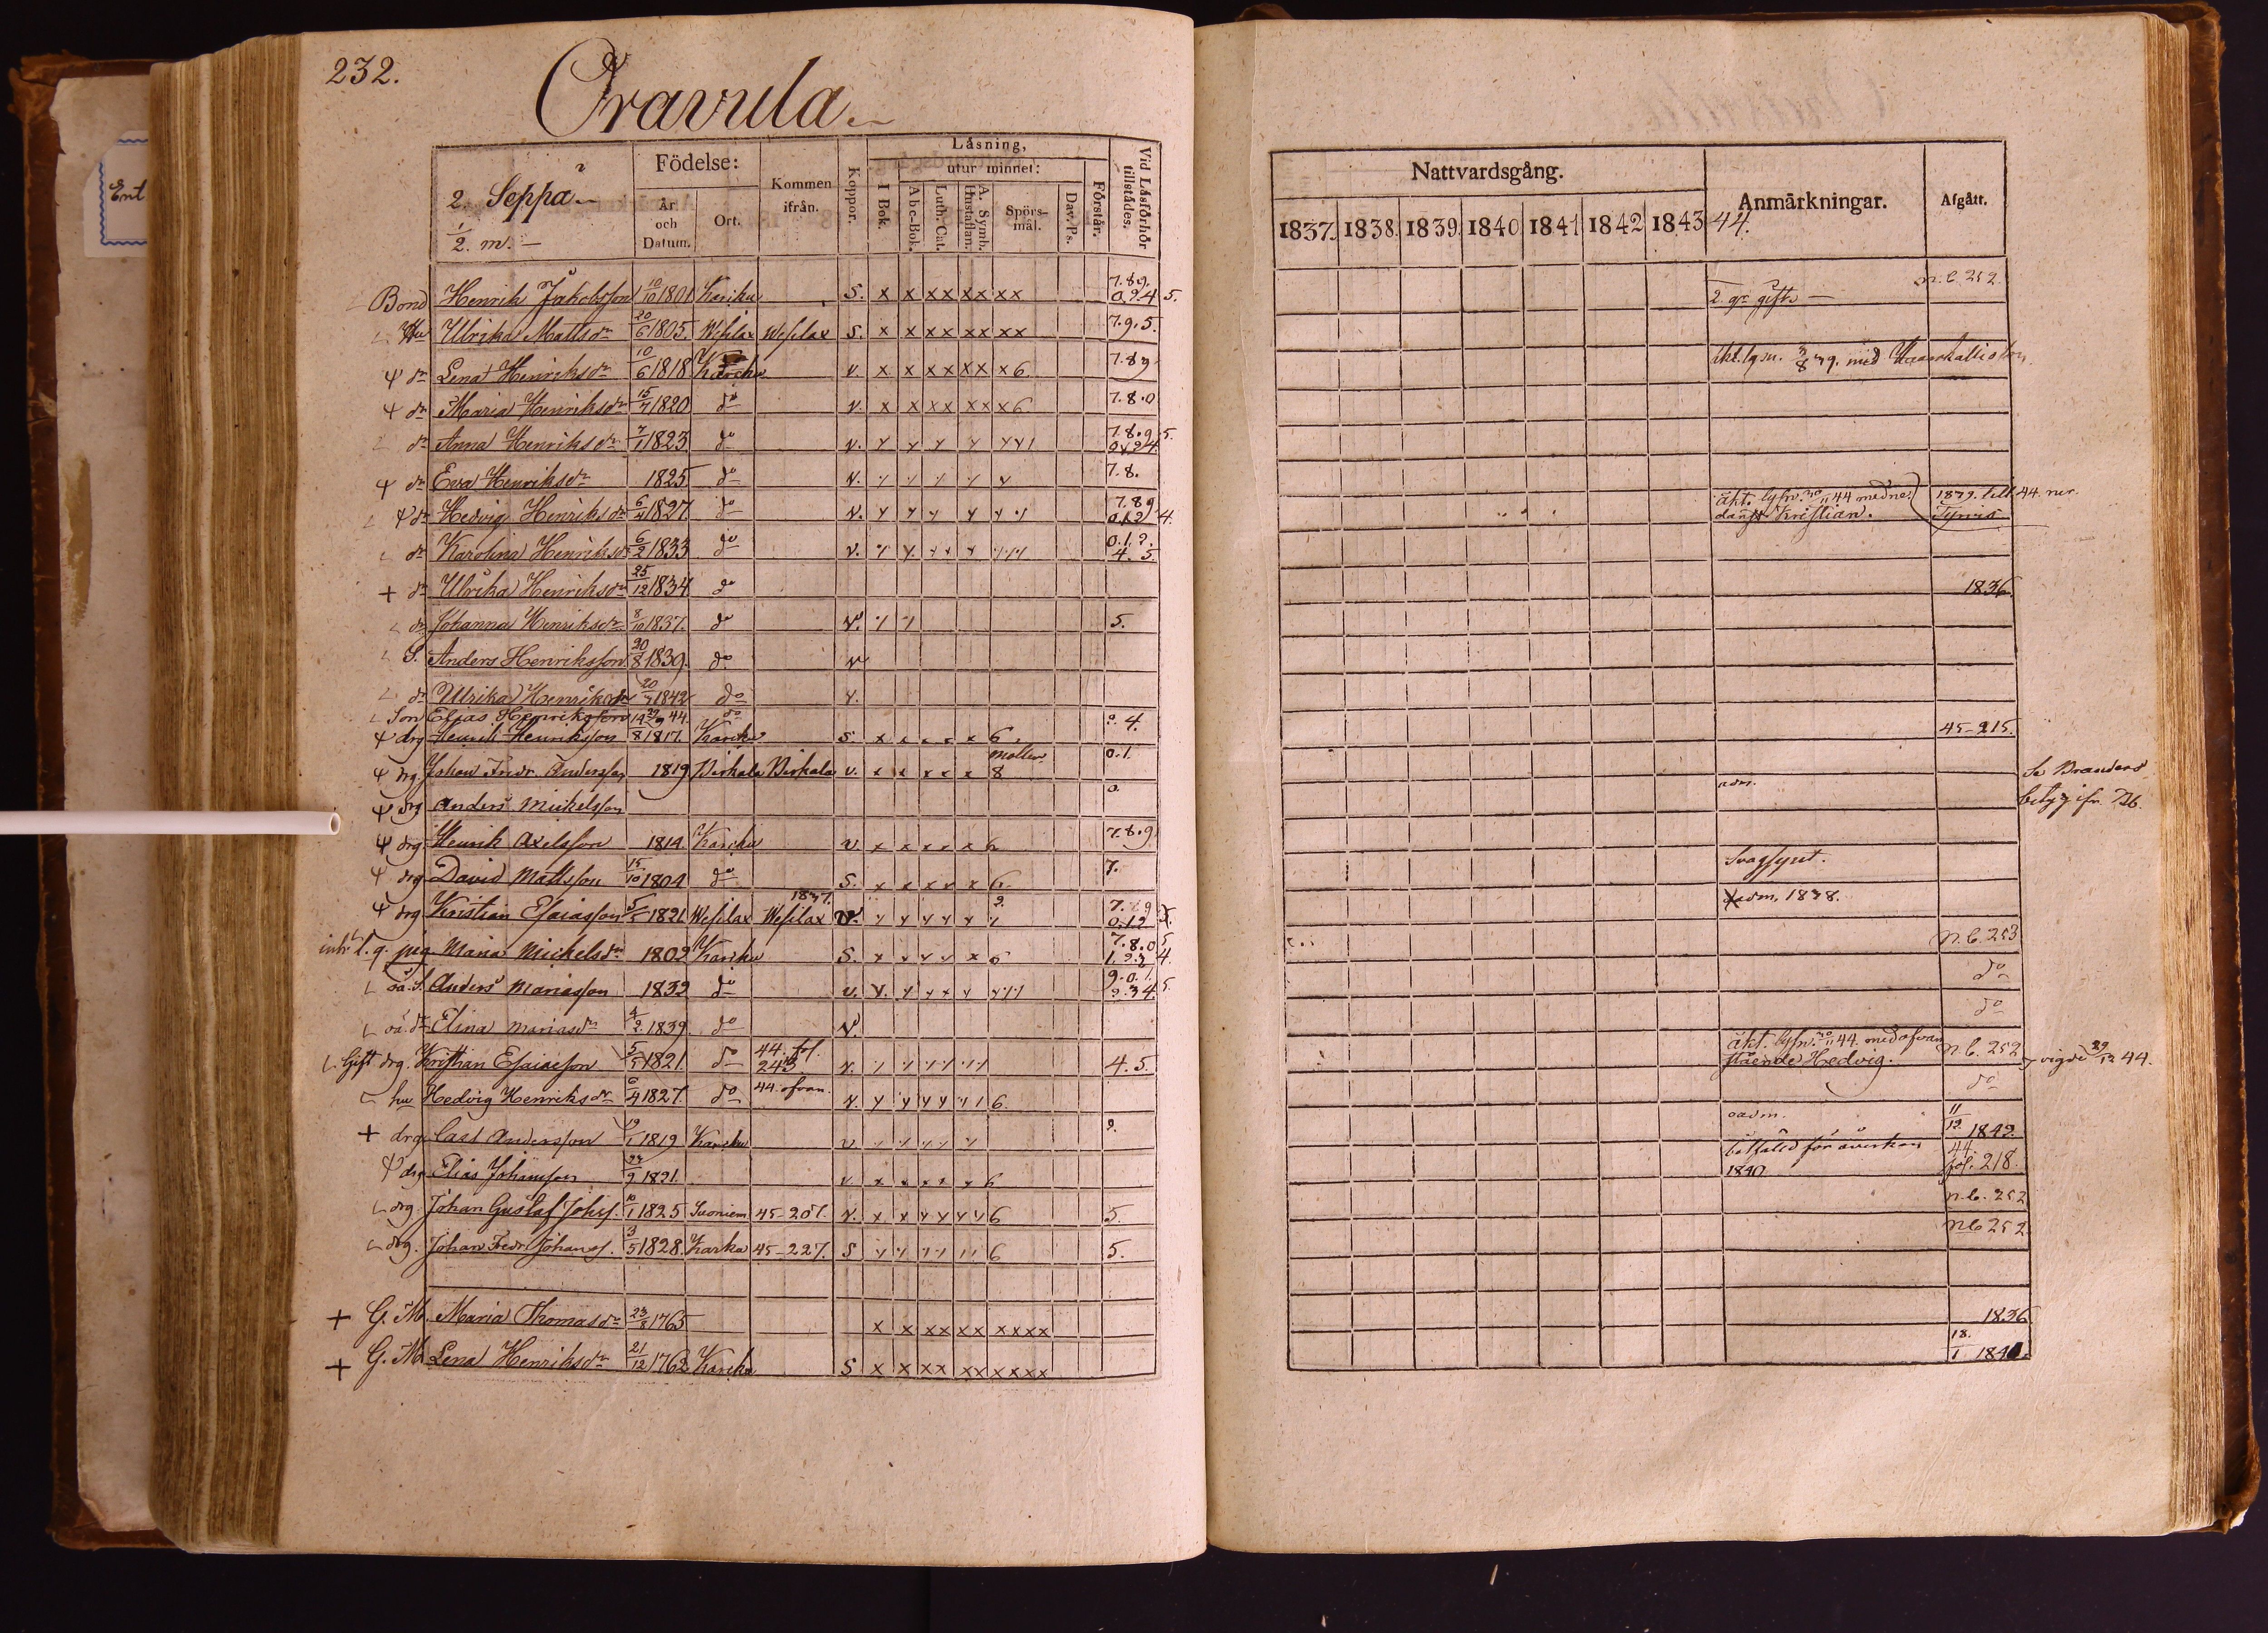 232.
Oravula
Ent
2. Seppä
1/2 m.
Födelse:
År och Datum.
Ort.
Kommen ifrån.
Koppor.
Läsning,
I Bok.
utur minnet:
Abc-Bok.
Luth. Cat.
A. Symb. Hustaflan.
Spörs-mål.
Dav. Ps.
Förstår.
Vid Läsförhör tillstådes.
Nattvardsgång.
1837. 1838. 1839. 1840 1841 1842 1843 44.
Anmärkningar.
Afgått.
Bond Henrik Jakobsson 10/10 1801 Karku S. x x xx xx xx 7.8.9. 0.2.4 5. 2. gr gift n.b. 252
Hu Ulrika Mattsdr 20/6 1805. Wesilax Wesilax S. x x xx xx xx 7.9.5.
dr Lena Henriksdr 10/6 1818 Karku v. x x xx xx x 6 7.8.9 med
dr Maria Henriksdr 15/7 1820 do v. x x xx xx x 6 7.8.0
dr Anna Henriksdr 7/1 1823 do v. 7.8.9 5.
dr Eva Henriksdr 1825 do v. 7.8.
dr Hedvig Henriksdr 6/4 1827 do v. 7.8.9 0.1.2 4. äkt. lysn. 30/11 44 med ne- danst. Kristian. 44.
Tyrvis
dr Karolina Henriksdr 6/2 1833 do v. 0.1.2. 4. 5.
+ dr Ulrika Henriksdr 25/12 1834 do 1836.
dr Johanna Henriksdr 8/10 1837. do v. 5.
S. Anders Henriksson 20/8 1839. do v
dr Ulrika Henriksdr 20/4 1842 do v.
Son Esias Henriksson 29/9 44. do
drg Henrik Henriksson 1817. Karku S. x x x x x 6. 2. 4. 45-215.
drg. Johan Fredr. Andersson 1819 Birkala Birkala v. x x x x x 8 0.1.
drg Anders Mickelsson 0. adm. Se Branders betyg ifr.
drg. Henrik Axelsson 1814 Karku v x x x x x 6 7.8.9
drg David Mattsson 15/10 1804 do S. x x x x x 6. 7. Svagsynt.
drg Kristian Esaiasson 5/5 1821 Wesilax 1837. Wesilax v. 7.8.9 0.1.2 adm. 1838.
inh. l. q. pig Maria Mickelsdr 1802 Karku S. 7.8.0 5 4. n.b. 253
oä. S. Anders Mariasson 1832 do v. 9.0.1. 2.3.4. 5. do
oä. dr Elina Mariasdr 4/2 1839 do v. do
Gift drg. Kristian Esaiasson 5/5 1821. do 44. fol. 243 v. 4.5. äkt. lysn. 30/11 44. med ofvan- stående Hedvig. n.b. 252 vigde 29/12 44.
hu Hedvig Henriksdr 6/4 1827. do 44. ofvan. v. 6. do
+ drg. Carl Andersson 1819 Karku v 2. oadm. 11/12 1842.
drg Elias Johansson 1821. v. x x x x x 6 för åverkan 1840 44. fol. 218.
drg. Johan Gustaf Johss. 10/1 1825 Suoniem 45-207. v. 6 5. n.b. 252
drg. Johan Fredr. Johanss. 3/5 1828. Karku 45-227. S 6 5. n.b 252.
+ G. M. Maria Thomasdr 23/8 1765 x x xx xx xxxx 1836
+ G. M. Lena Henriksdr 21/12 1762 Karku S x x xx xx xxxx 18/1